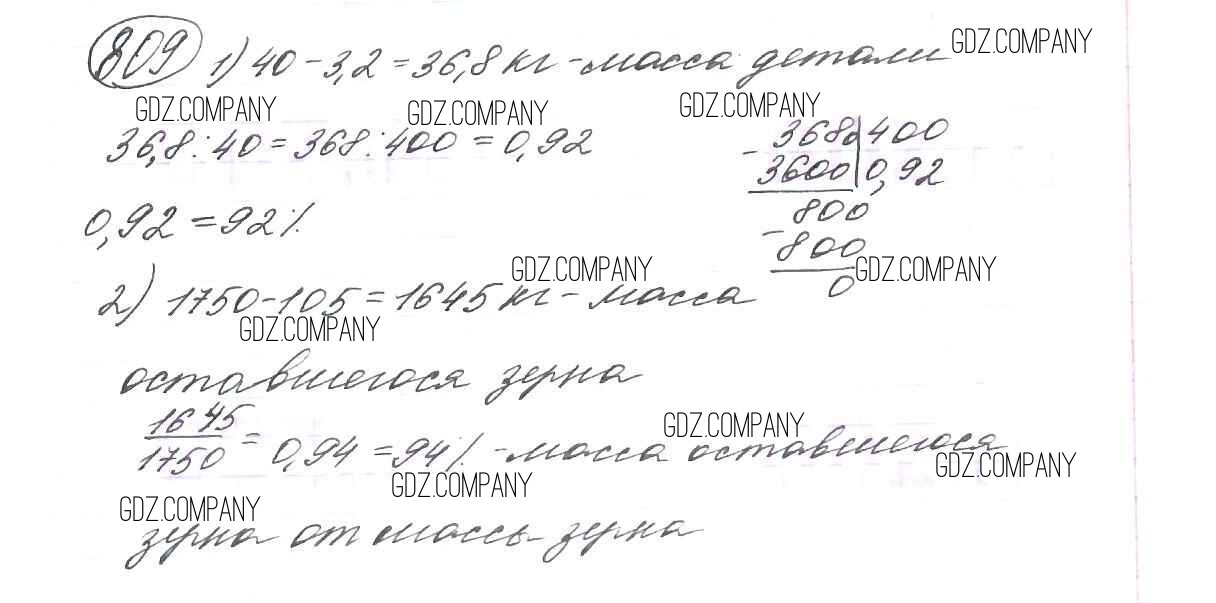 809 1) 40 - 3,2 = 36,8 кг - масса детали GDZ.COMPANY
GDZ.COMPANY GDZ.COMPANY GDZ.COMPANY
36,8 : 40 = 368 : 400 = 0,92
- 3680 400
3600 0,92
800
- 800
0
0,92 = 92%
GDZ.COMPANY GDZ.COMPANY
2) 1750 - 105 = 1645 кг - масса
GDZ.COMPANY
оставшегося зерна
GDZ.COMPANY
1645/1750 = 0,94 = 94% - масса оставшегося
GDZ.COMPANY GDZ.COMPANY
GDZ.COMPANY
зерна от массы зерна